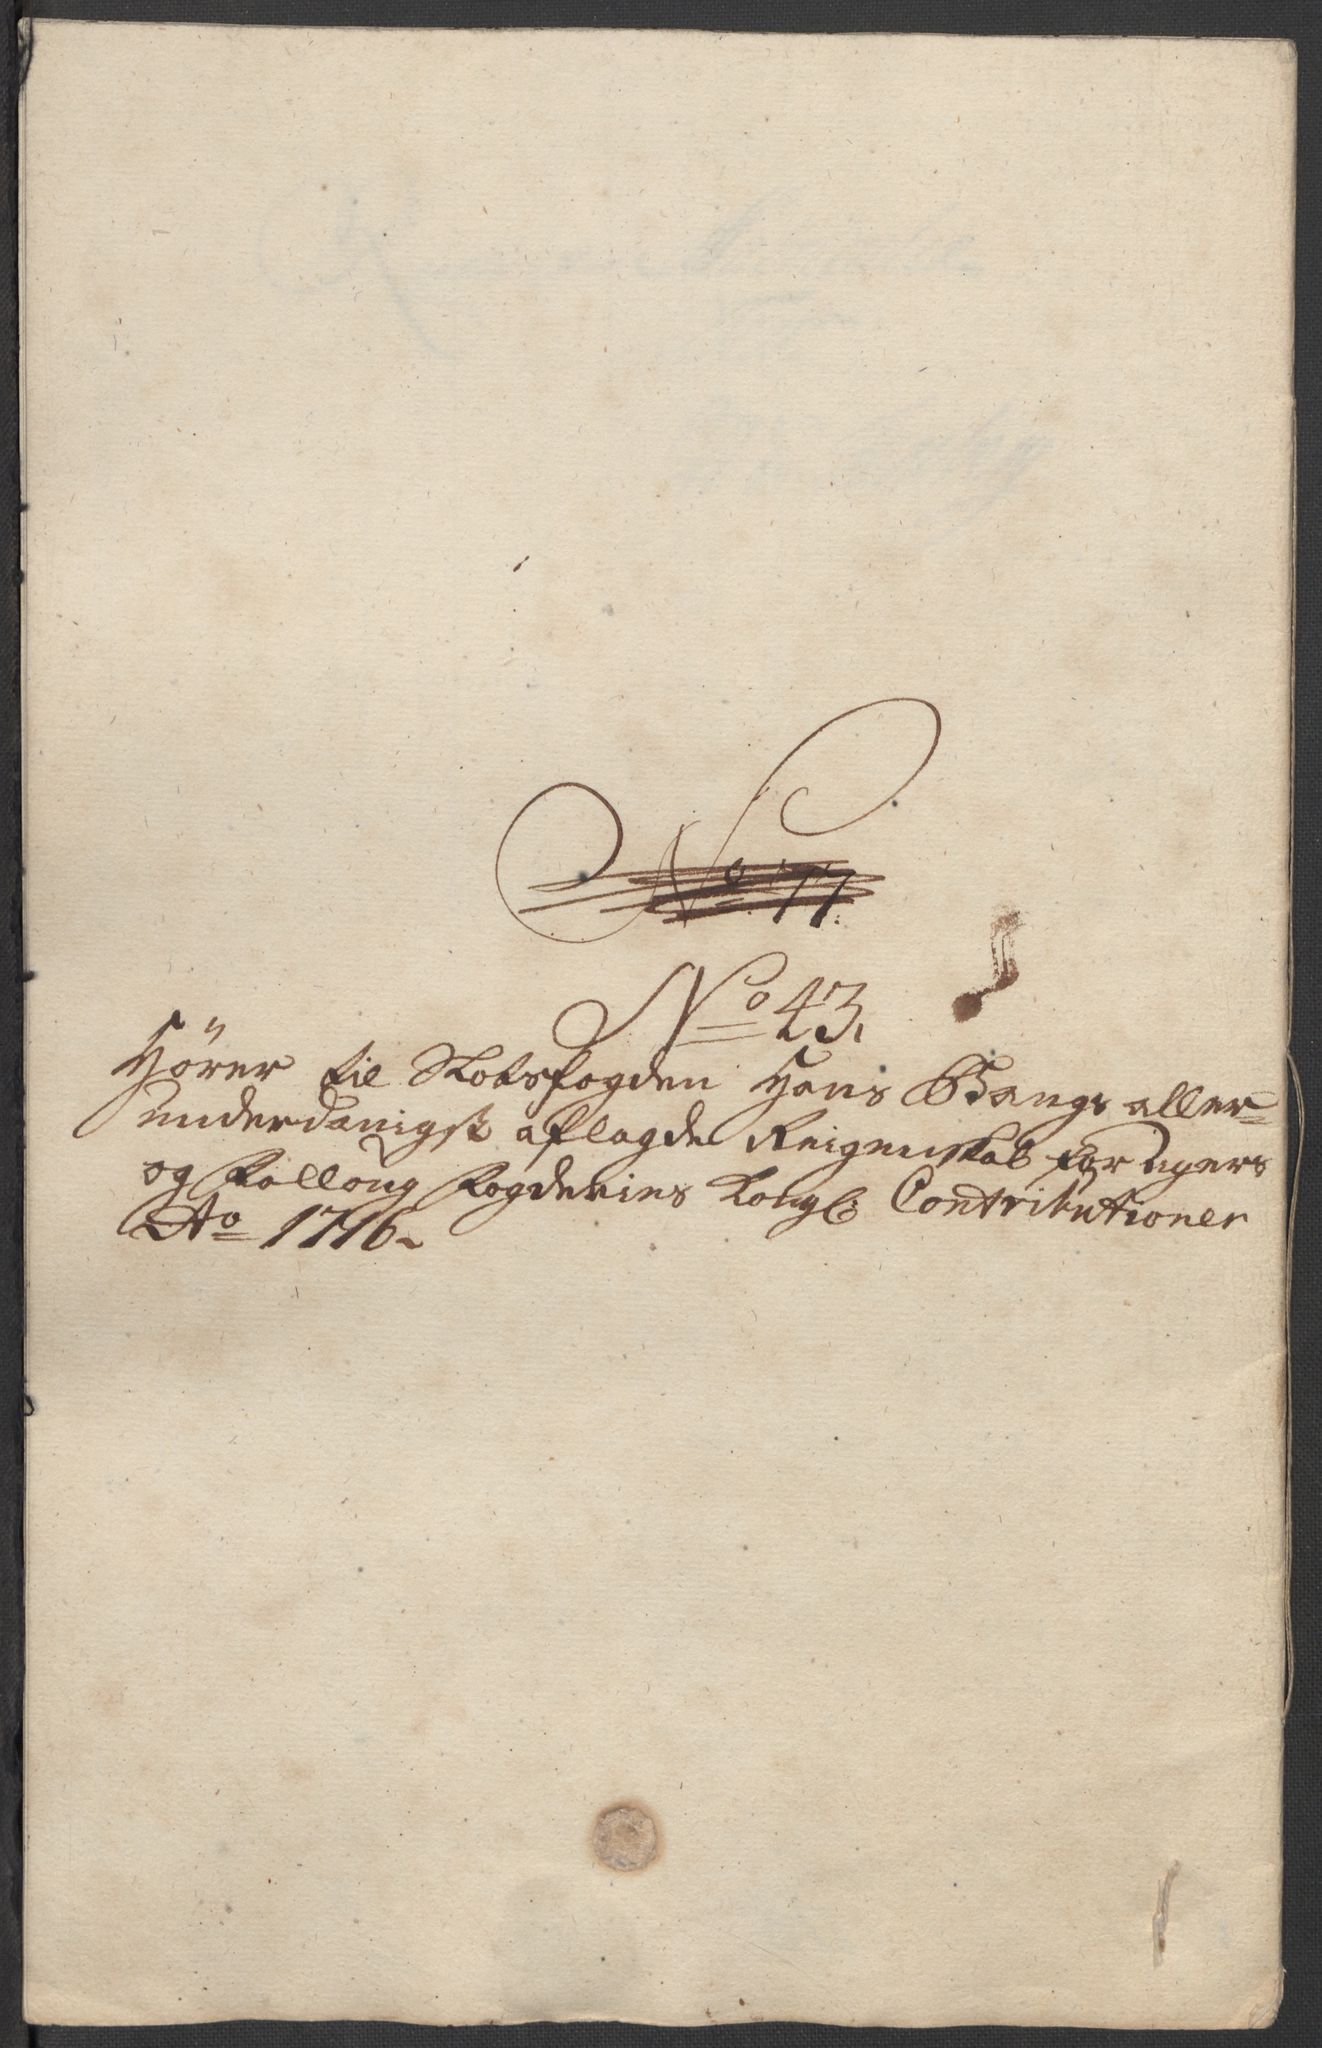 No 17.
No 43.
Hörer til Skatsfogden Hans Bangs aller=
underdanigst aflagde Reigenskab for Nyers
og Falloug Fogderies Kongl: Contributioner
Ao 1716